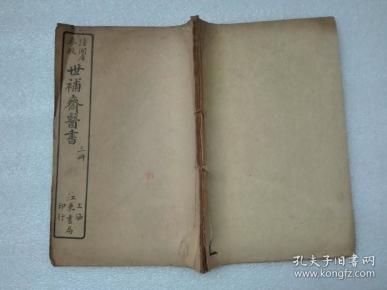 陸潤庠
世補齋醫書
上海
江東書局
印行
孔夫子旧书网